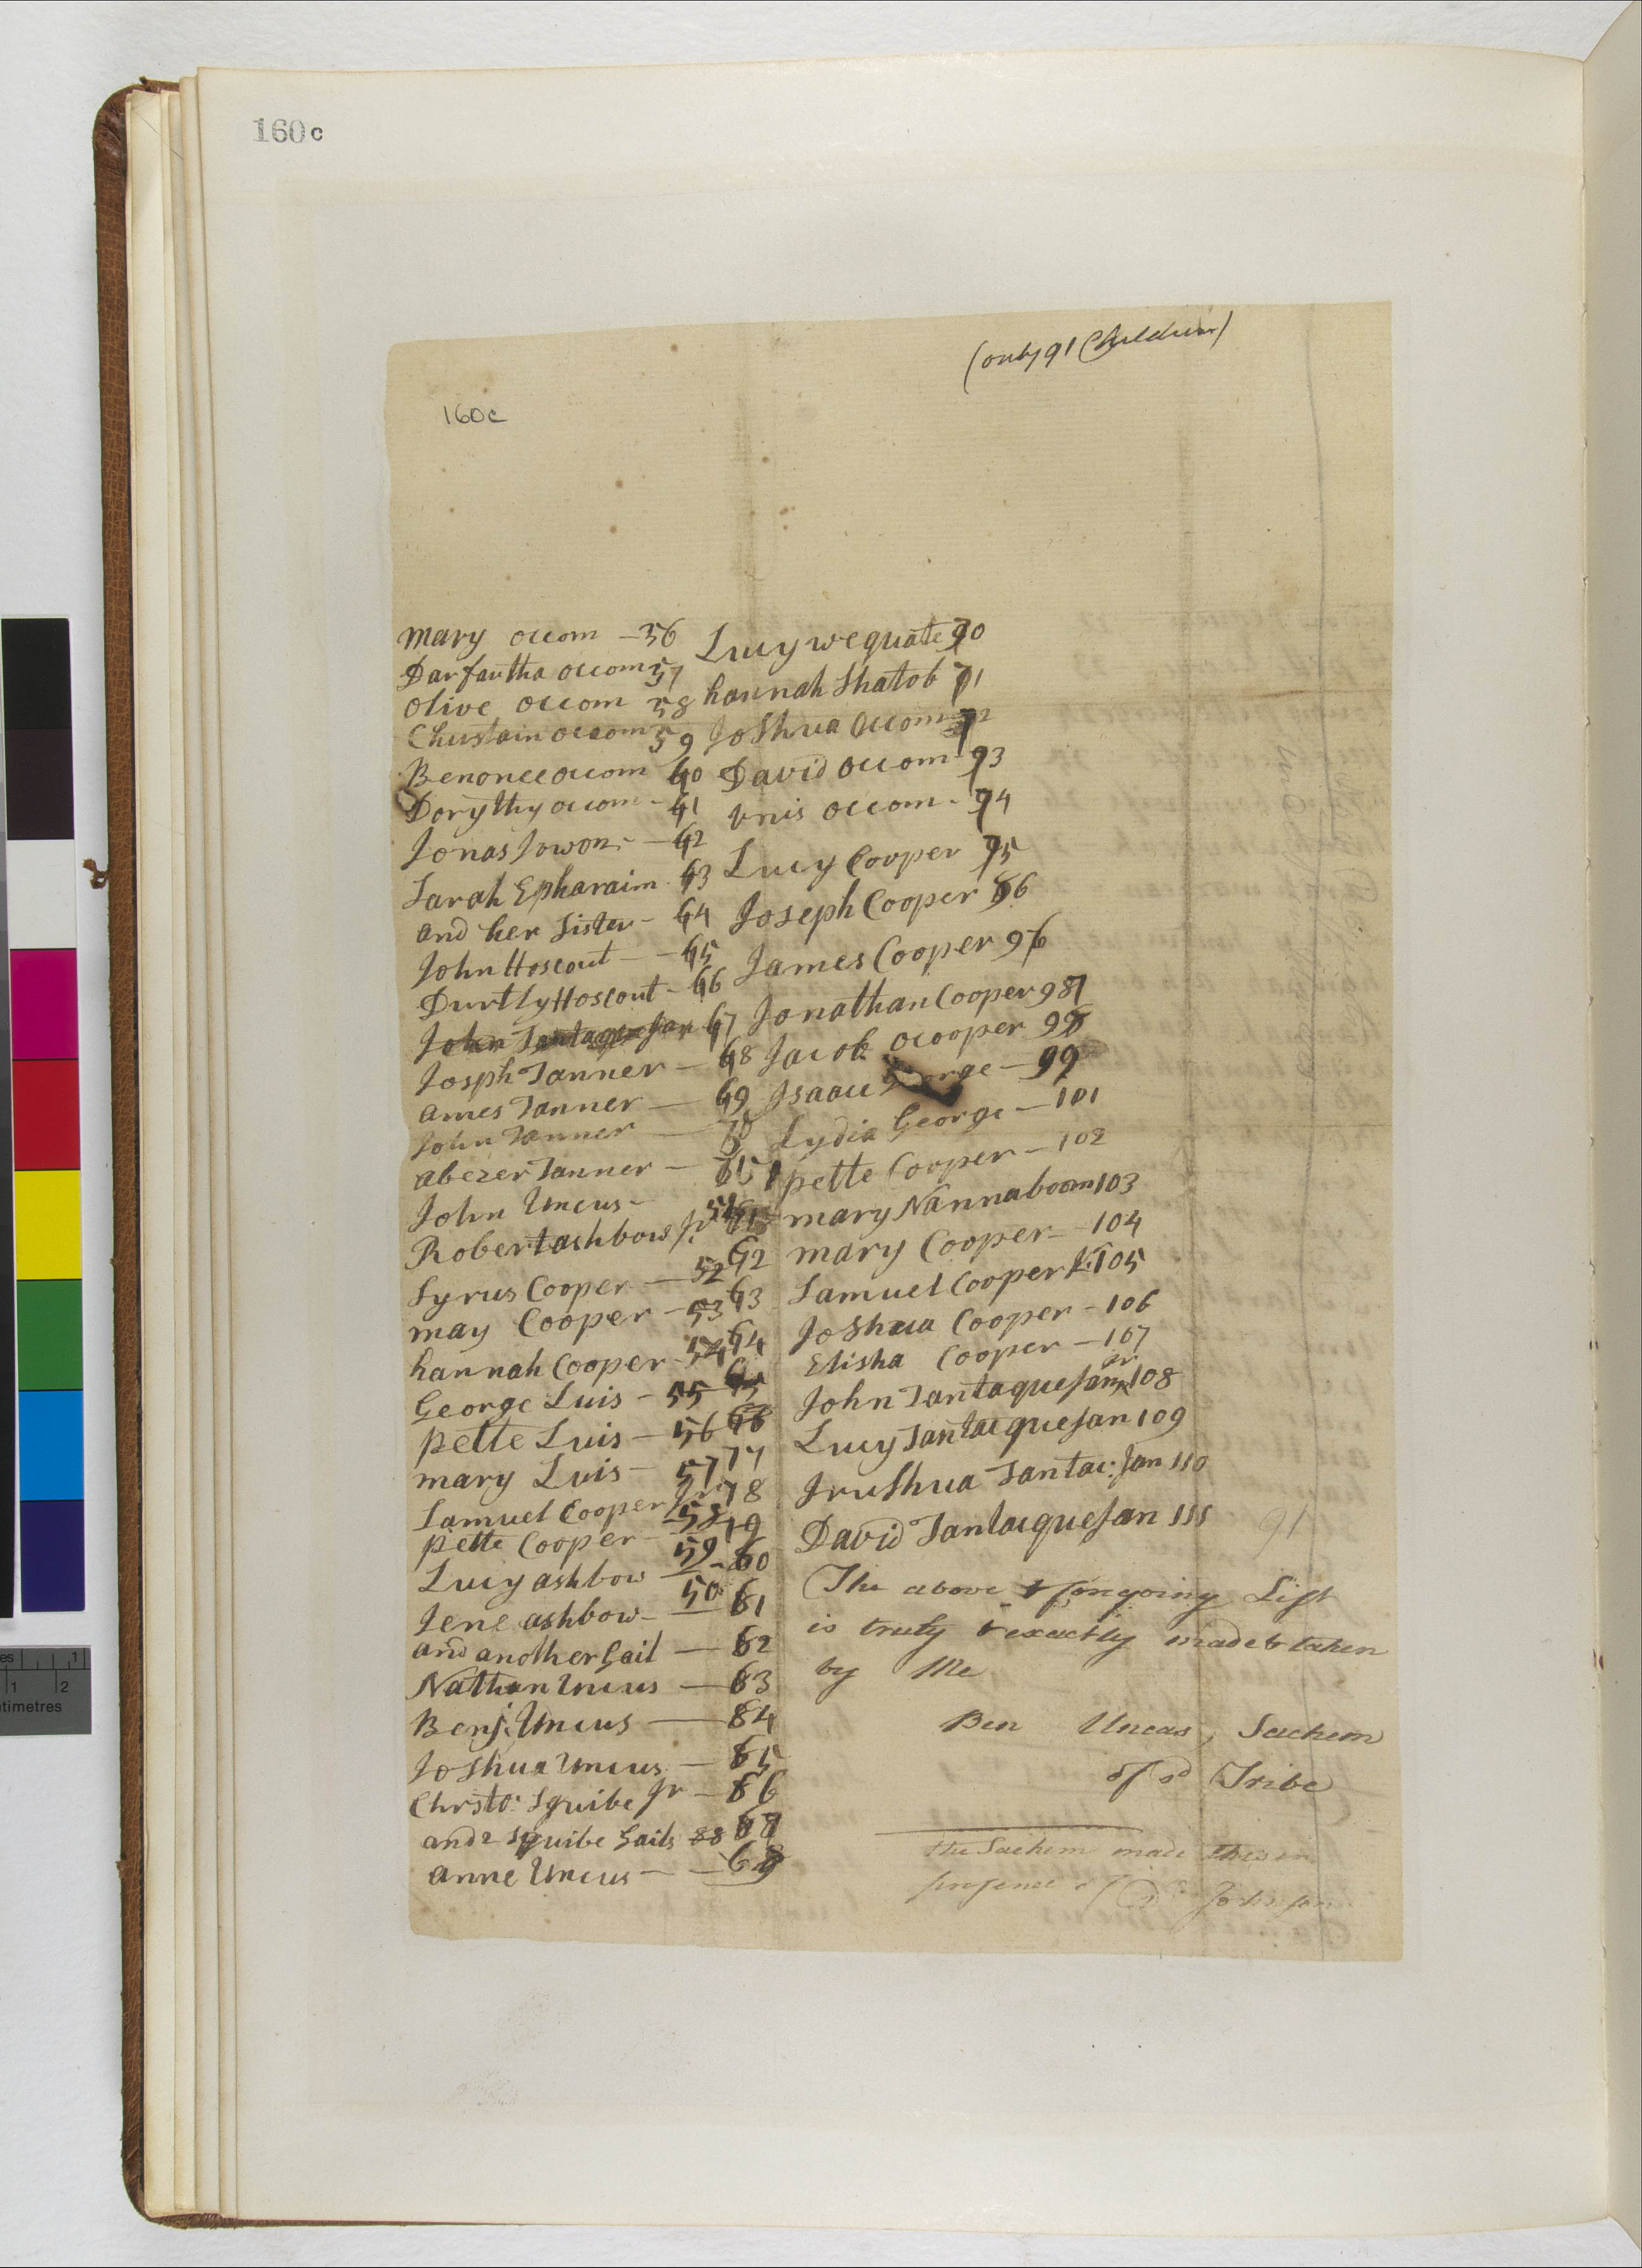 160c
(only 91 Children)
160c
mary occom — 56
Darfautha occom 57
olive occom 58
Christain occom 59
Benonee occom 60
Dorythy occom - 61
Jonas Jowon - — 62
Sarah Epharaim 63
and her Sister - 64
John Hoscout — 65
Durtly Hoscout - 66
John Tantaquejan 67
Josph Tanner — 68
ames Tanner — 69
John Tanner —
abezer Tanner —
John Uncus -
Robert ashbow Jr.
Syrus Cooper — 52
may Cooper — 53
hannah Cooper - 54
George Luis - 55
pette Luis — 56
mary Luis — 57 77
Samuel Cooper Jr 78
pette Cooper - 58
Lucy ashbow 59
Jene ashbow — 50 81
and another Gail — 82
Nathan Uncus — 83
Benj: Uncus — 84
Joshua Uncus — 85
Christo: Squibe Jr — 86
and 2 Squibe Gails 88
anne Uncus —
Lucy wequate 90
hannah Shatob 91
Joshua Occom 92
David occom 93
unis occom - 94
Lucy Cooper 95
Joseph Cooper 86
James Cooper 96
Jonathan Cooper 987
Jacob ocooper 98
Isaac George — 99
Lydia George — 101
pette Cooper — 102
mary Nannaboom 103
mary Cooper — 104
Samuel Cooper 105
Joshua Cooper - 106
Elisha Cooper — 107
John Tantaquejan Jr 108
Lucy Tantacquejan 109
Jrushua Tantac: Jan 110
David Tantacquejan 111
91
The above & foregoing List
is truly & exactly made & taken
by Me
Ben Uncas, Sachem
of sd Tribe
the Sachem made this in
presence of Johnson